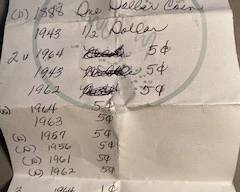 (D) 1888 One Dollar Coin
1943 1/2 Dollar
2 1964 5¢
1943 5¢
1962 5¢
1964 5¢
1963 5¢
1957 5¢
1956 5¢
1961 5¢
1962 5¢
1964 1¢